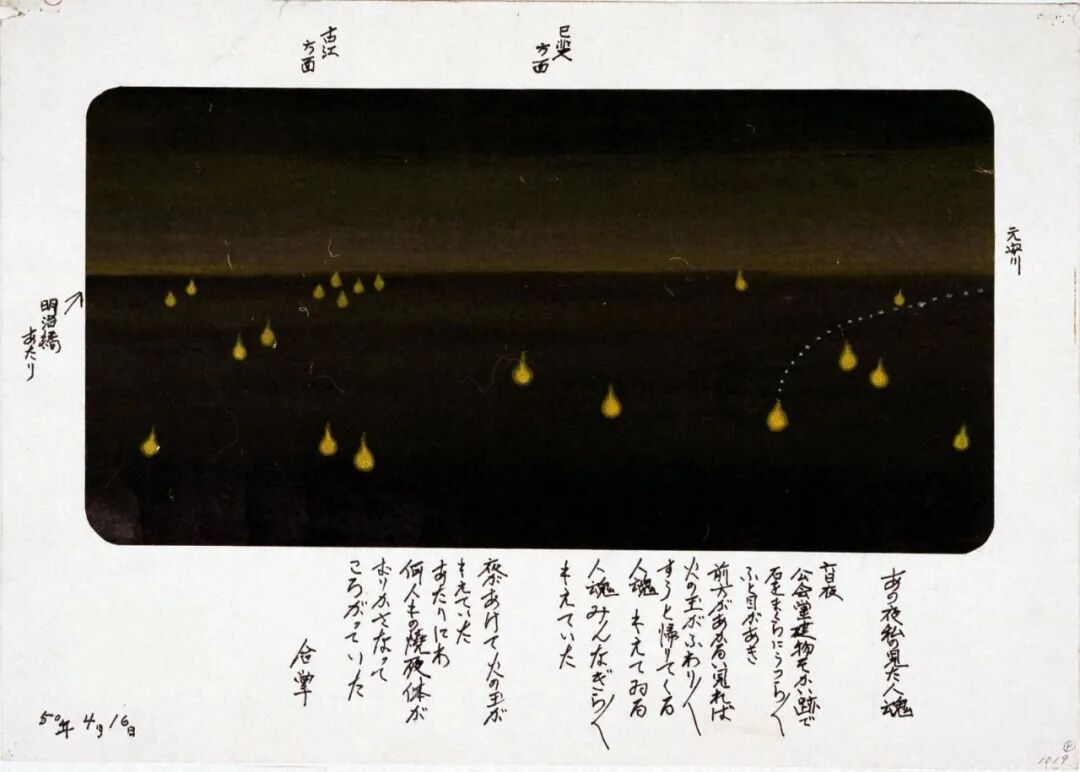 己斐
方面
古江
方面
元安川
明治橋
あたり
あの夜私の見た人魂
六日夜
公会堂建物そかい跡で
石をまくらにうつら〱
ふと目があき
前方があかるい見れば
火の玉がふわり〱
すうと帰りてくる
人魂 もえてゐる
人魂みんなぎら〱
もえていた
夜があけて火の玉が
もえていた
あたりにわ
何人もの焼死体が
おりかさなって
ころがっていた
合掌
50年4月16日